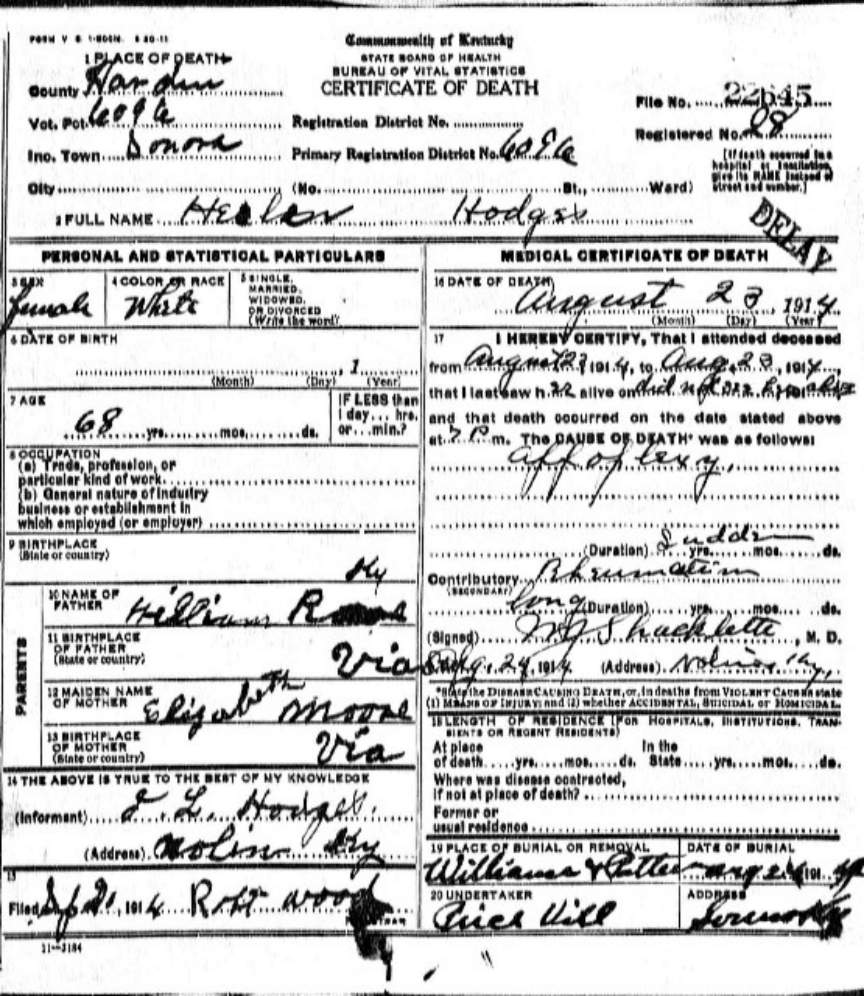 FORM V. S. 1-500M. 8-20-11
Commonwealth of Kentucky
STATE BOARD OF HEALTH
BUREAU OF VITAL STATISTICS
CERTIFICATE OF DEATH
1 PLACE OF DEATH
County Hardin
Vot. Pct. 6096
Inc. Town Sonora
City
Registration District No.
Primary Registration District No. 6096
(No. St., Ward)
File No. 22645
Registered No. 28
[If death occurred in a hospital or institution, give its NAME instead of street and number.]
2 FULL NAME Helen Hodges
DELAY
PERSONAL AND STATISTICAL PARTICULARS
3 SEX
female
4 COLOR OR RACE
White
5 SINGLE, MARRIED, WIDOWED, OR DIVORCED
(Write the word)
6 DATE OF BIRTH
, 1
(Month) (Day) (Year)
7 AGE
68 yrs. mos. ds.
IF LESS than
1 day... hrs.
or...min.?
8 OCCUPATION
(a) Trade, profession, or
particular kind of work
(b) General nature of industry
business or establishment in
which employed (or employer)
9 BIRTHPLACE
(State or country)
Ky
PARENTS
10 NAME OF FATHER
William
11 BIRTHPLACE OF FATHER
(State or country)
Via
12 MAIDEN NAME OF MOTHER
Elizabeth Moore
13 BIRTHPLACE OF MOTHER
(State or country)
Via
14 THE ABOVE IS TRUE TO THE BEST OF MY KNOWLEDGE
(Informant) L. Hodges
(Address) Nolin Ky
15
Filed 1914 Robt Wood
11-3184
MEDICAL CERTIFICATE OF DEATH
16 DATE OF DEATH
August 23, 1914
(Month) (Day) (Year)
17 I HEREBY CERTIFY, That I attended deceased
from August 23 1914, to Aug. 23, 1914,
that I last saw h alive on did not see
and that death occurred on the date stated above
at 7 P.m. The CAUSE OF DEATH* was as follows:
(Duration) Sudden yrs. mos. ds.
Contributory Rheumatism
(SECONDARY)
long (Duration) yrs. mos. ds.
(Signed) Shacklette, M. D.
Aug. 24, 1914 (Address) Nolin Ky.
*State the DISEASE CAUSING DEATH, or, in deaths from VIOLENT CAUSES state
(1) MEANS OF INJURY; and (2) whether ACCIDENTAL, SUICIDAL or HOMICIDAL.
18 LENGTH OF RESIDENCE (FOR HOSPITALS, INSTITUTIONS, TRAN-
SIENTS OR RECENT RESIDENTS)
At place In the
of death yrs. mos. ds. State yrs. mos. ds.
Where was disease contracted,
if not at place of death?
Former or
usual residence
19 PLACE OF BURIAL OR REMOVAL
Williams
DATE OF BURIAL
Aug 24 191
20 UNDERTAKER
ADDRESS